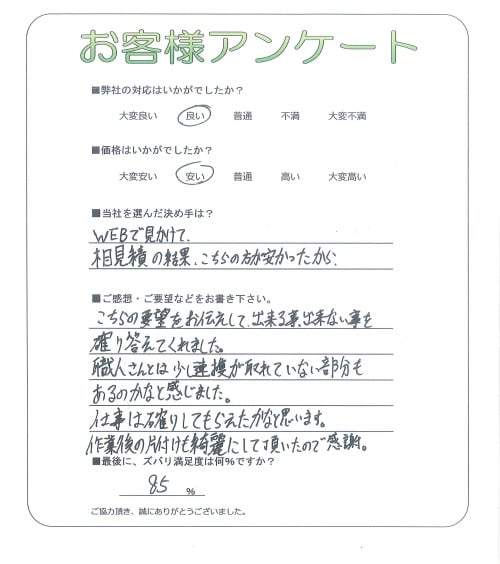 お客様アンケート
■弊社の対応はいかがでしたか?
大変良い 良い 普通 不満 大変不満
■価格はいかがでしたか?
大変安い 安い 普通 高い 大変高い
■当社を選んだ決め手は?
WEBで見かけて、
相見積の結果、こちらの方が安かったから、
■ご感想・ご要望などをお書き下さい。
こちらの要望をお伝えして、出来る事、出来ない事を
確り答えてくれました。
職人さんとは少し連携が取れていない部分も
あるのかなと感じました。
仕事は確りしてもらえたかなと思います。
作業後の片付けも綺麗にして頂いたので感謝。
■最後に、ズバリ満足度は何%ですか?
85 %
ご協力頂き、誠にありがとうございました。